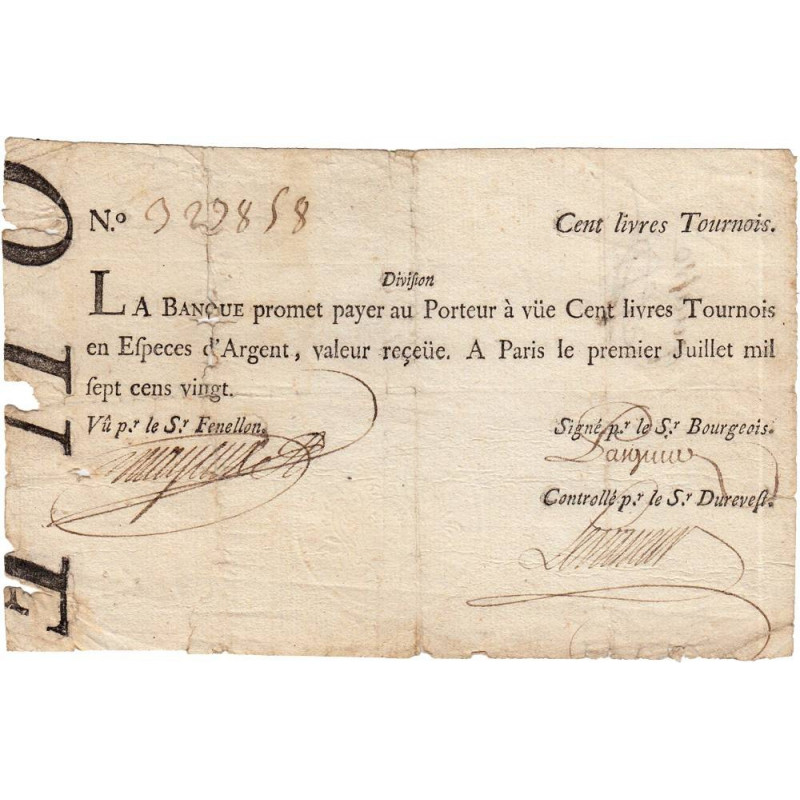 N.o 929858 Cent livres Tournois.
Diviſion
LA BANQUE promet payer au Porteur à vüe Cent livres Tournois
en Eſpeces d'Argent, valeur reçeüe. A Paris le premier Juillet mil
ſept cens vingt.
Vû p.r le S.r Fenellon. Signé p.r le S.r Bourgeois.
Controllé p.r le S.r Dureveſt.